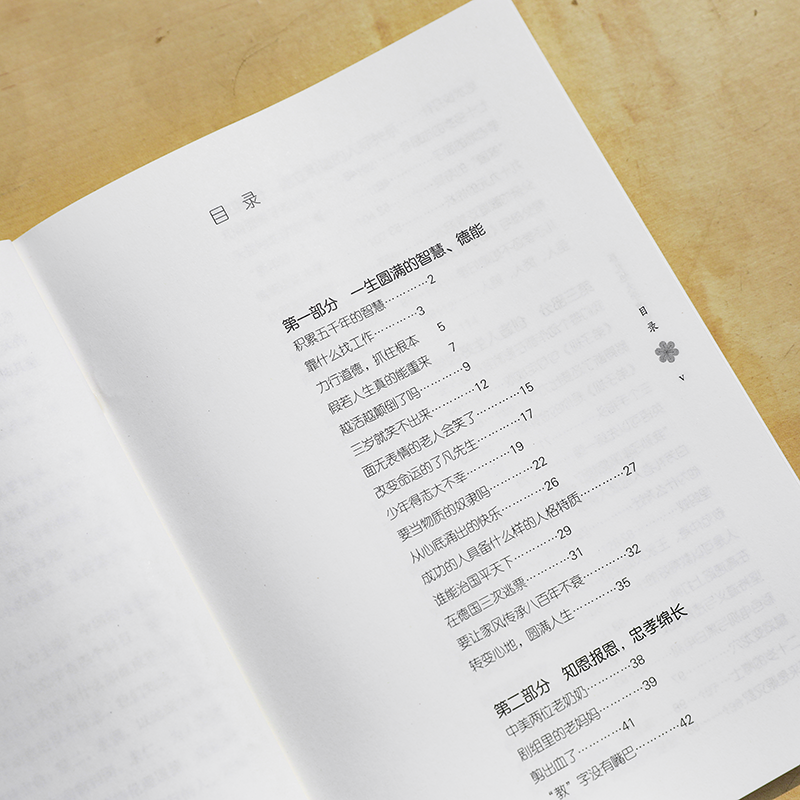 目 录
第一部分 一生圆满的智慧、德能
积累五千年的智慧…………2
靠什么找工作…………3
力行道德，抓住根本 5
假若人生真的能重来 7
越活越颠倒了吗…………9
三岁就笑不出来…………12
面无表情的老人会笑了…………15
改变命运的了凡先生…………17
少年得志大不幸…………19
要当物质的奴隶吗…………22
从心底涌出的快乐…………26
成功的人具备什么样的人格特质…………27
谁能治国平天下…………29
在德国三次逃票…………31
要让家风传承八百年不衰…………32
转变心地，圆满人生…………35
第二部分 知恩报恩，忠孝绵长
中美两位老奶奶…………38
剧组里的老妈妈…………39
剪出血了…………41
“教”字没有嘴巴…………42
目录
V